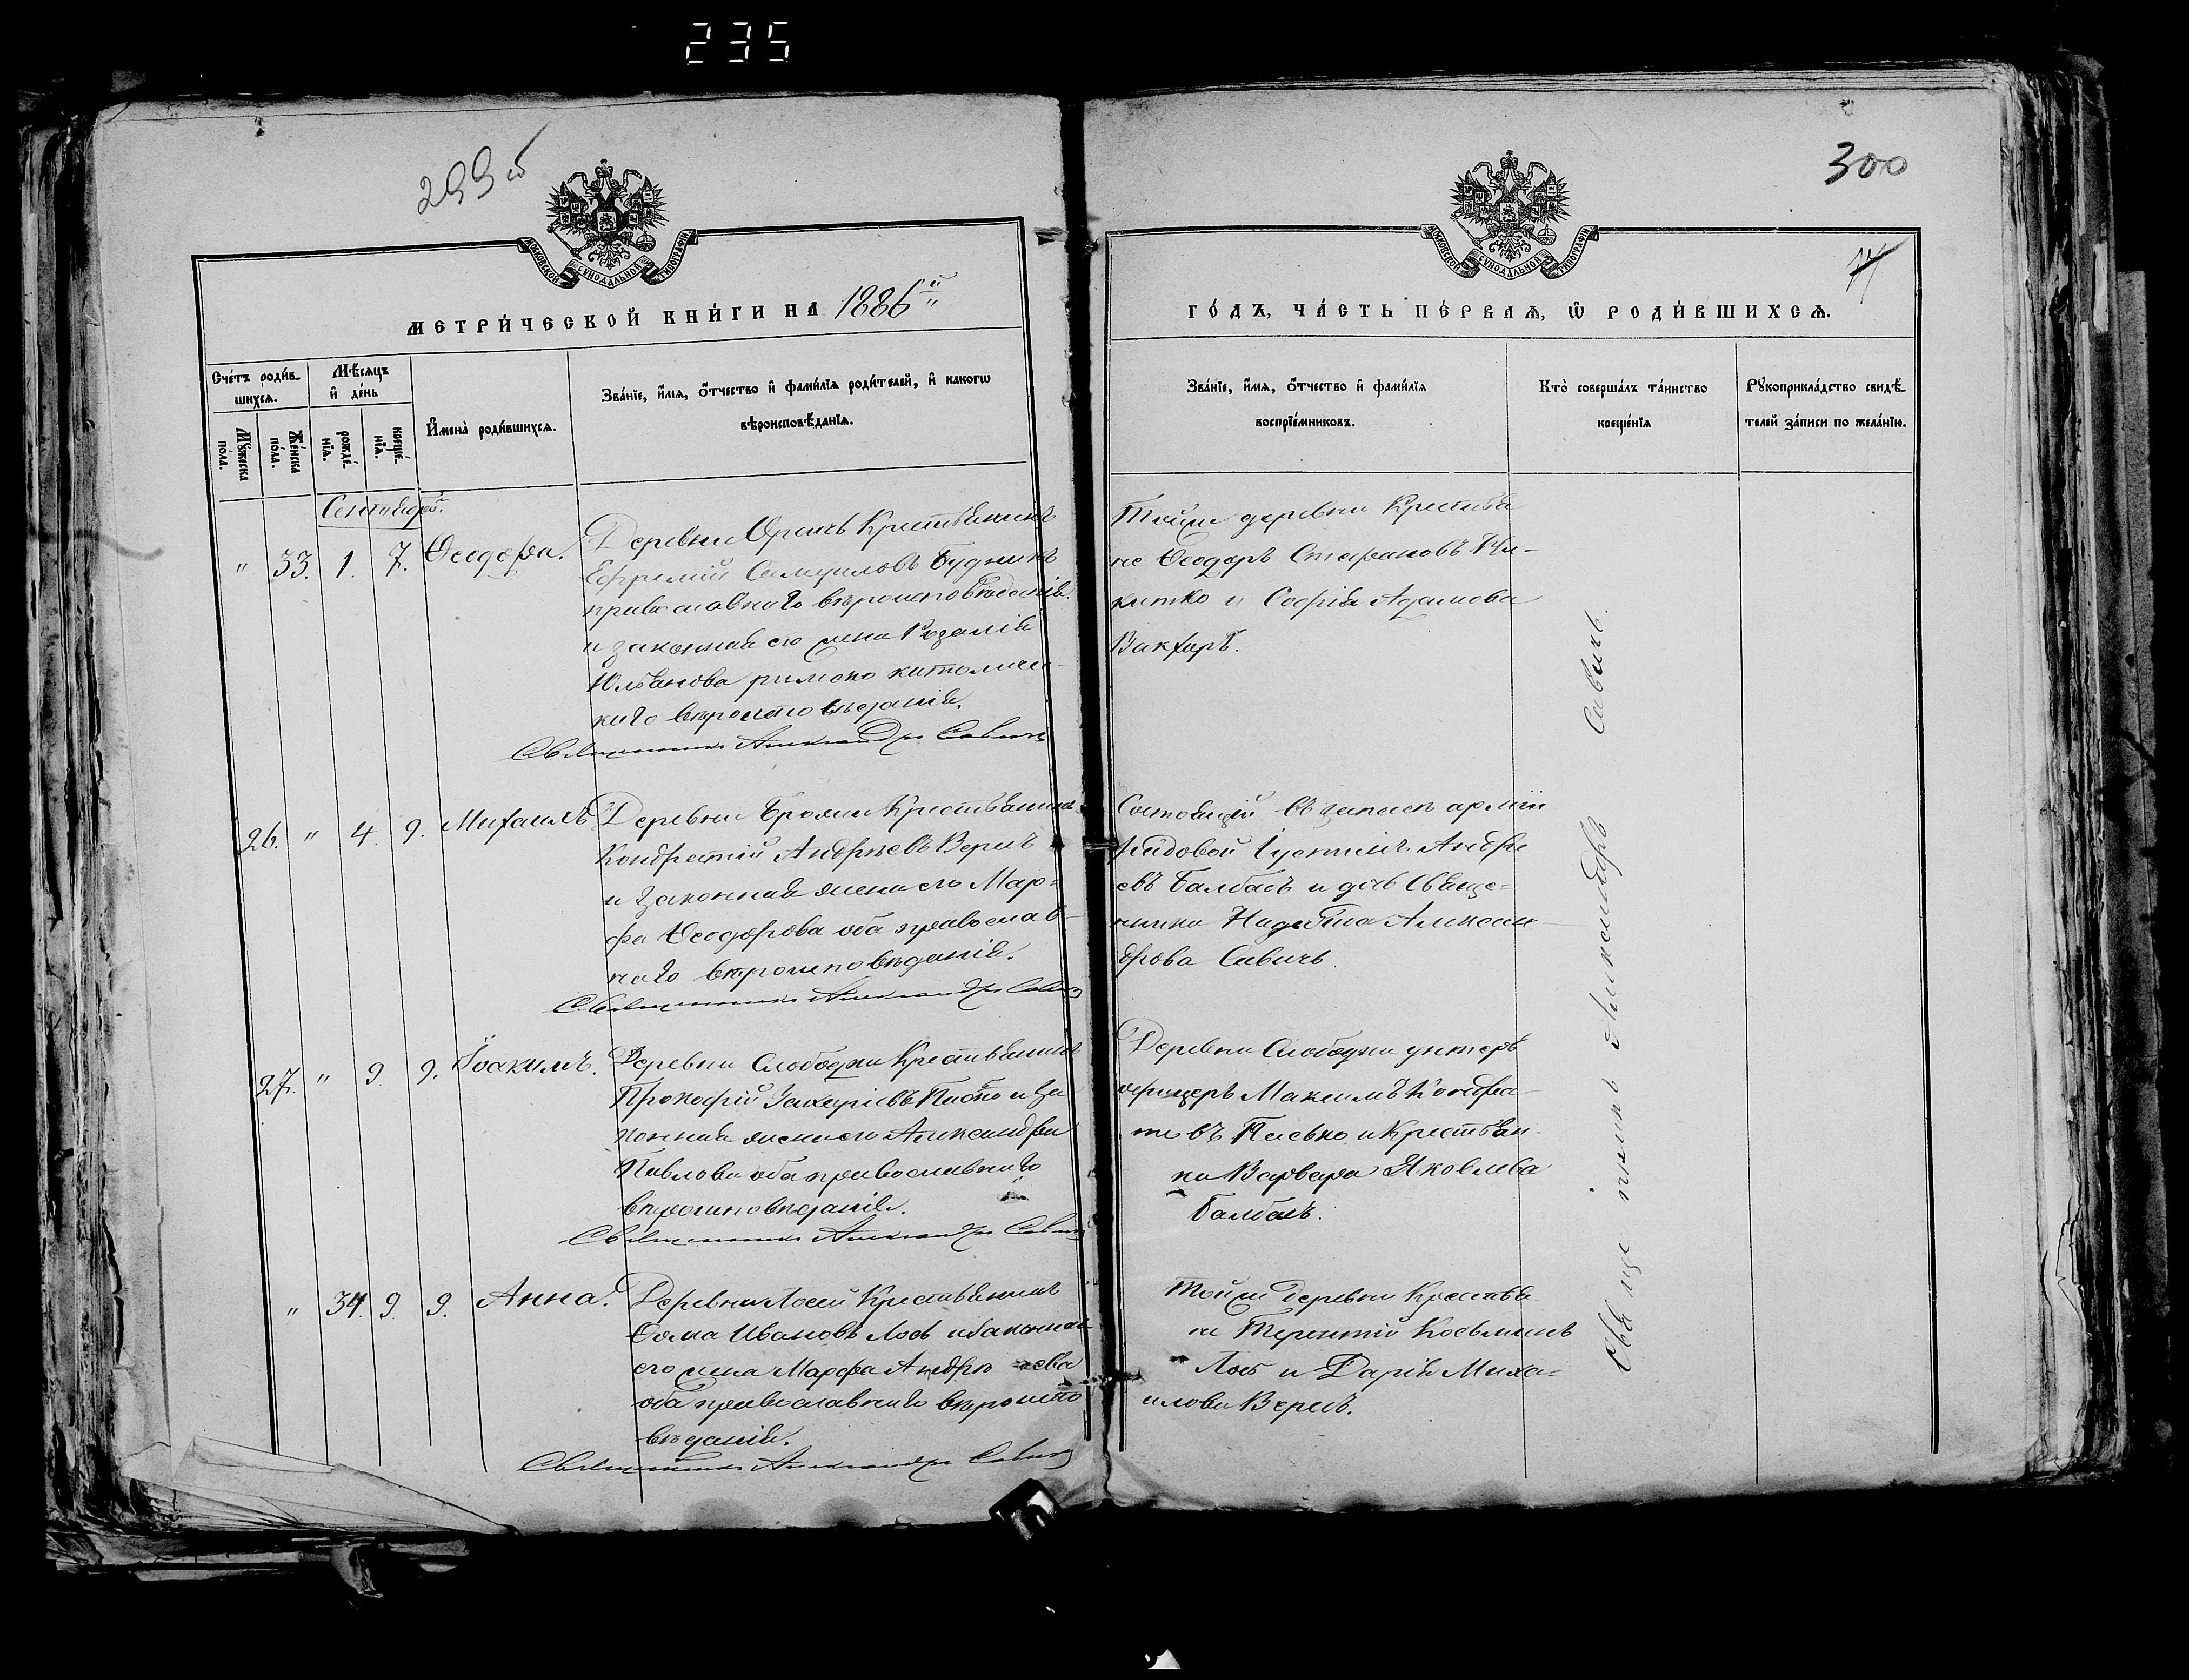 235
299 б
300
МОСКОВСКОЙ СѴНОДАЛЬНОЙ ТИПОГРАФІИ
МОСКОВСКОЙ СѴНОДАЛЬНОЙ ТИПОГРАФІИ
МЕТРИ́ЧЕСКОЙ КНИ́ГИ НА 1886й
ГО́ДЪ, ЧА́СТЬ ПЕ́РВАѦ, Ѿ РОДИ́ВШИХСѦ.
Сче́тъ роди́в-
шихсѧ.
Мꙋ́жеска
по́ла.
Же́нска
по́ла.
Мѣ́сѧцъ
и҆ де́нь
рожде́-
нїѧ.
креще́-
нїѧ.
И҆мена̀ роди́вшихсѧ.
Зва́нїе, и҆́мѧ, о҆́тчество и҆ фами́лїѧ роди́телей, и҆ какогѡ
вѣроисповѣ́данїѧ.
Зва́нїе, и҆́мѧ, о҆́тчество и҆ фами́лїѧ
воспрїе́мниковъ.
Кто̀ соверша́лъ та́инство
креще́нїѧ
Рꙋкоприкла́дство свидѣ́-
телей за́писи по жела́нїю.
Сентябрь.
" 33. 1. 7. Ѳеодора.
Деревни Крестьянинъ
Ефремій Самуиловъ Будникъ
православнаго вѣроисповѣданія
и законная его жена Розалія
римско католичес-
каго вѣроисповѣданія.
Священникъ Александръ Савичъ
Тойже деревни Крестья
не Ѳеодоръ Стефановъ Ми-
китко и Софія Адамова
Вакхаръ.
26. " 4. 9. Михаилъ
Деревни Крестьянинъ
Кондратій Андреевъ Вересъ
и законная жена его Мар-
фа Ѳеодорова оба православ-
наго вѣроисповѣданія.
Священникъ Александръ Савичъ
Состоящій въ запасѣ арміи
рядовой Іустинъ Андре
евъ Балбасъ и дочь Свяще-
нника Александ-
рова Савичъ.
27. " 9. 9. Іоакимъ.
Деревни Слободки Крестьянинъ
Прокофій Захаріевъ и за
конная жена его Александра
Павлова оба православнаго
вѣроисповѣданія.
Священникъ Александръ Савичъ
Деревни Слободки унтеръ
офицеръ Максимъ Кондра-
товъ и Крестьян-
ка Варвара Яковлева
Балбасъ.
" 34. 9. 9. Анна.
Деревни Лосей Крестьянинъ
Ѳома Ивановъ Лось и законная
его жена Марфа Андреева
оба православнаго вѣроиспо
вѣданія.
Священникъ Александръ Савичъ
Тойже деревни Крестья
не Терентій Косьминъ
Лось и Дарія Миха-
илова Вересъ.
Священникъ Александръ Савичъ.